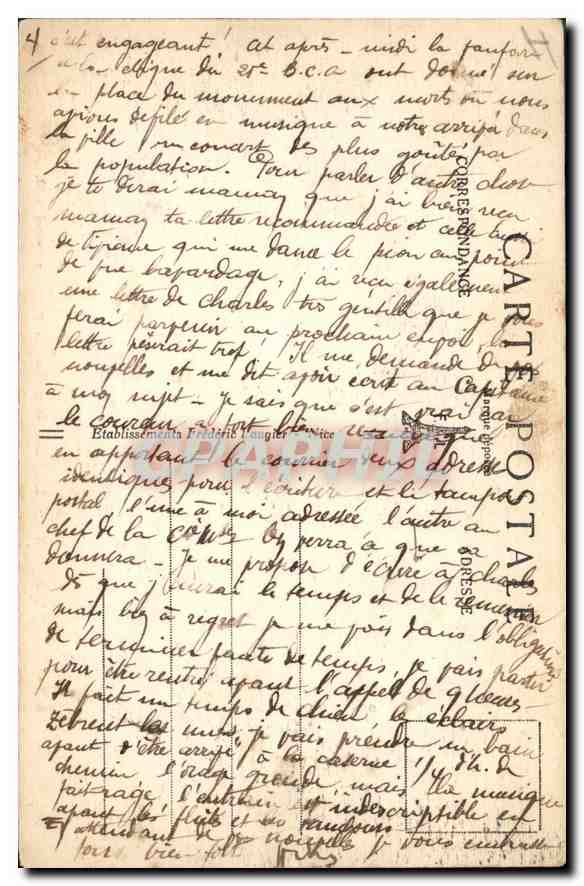 4
c'est engageant! Cet après-midi la fanfare
clique du 25e B.C.A ont donné sur
la place du monument aux morts où nous
avions défilé en musique à notre arrivée dans
la ville un concert des plus goûtés par
la population. Pour parler d'autre chose
je te dirai maman que j'ai bien reçu
maman ta lettre recommandée et celle
de qui me
de bavardage, j'ai reçu également
une lettre de Charles très gentille que je vous
ferai parvenir au prochain envoi, la
lettre pèserait trop! Il me demande de
nouvelles et me dit avoir écrit au Capitaine
à mon sujet - je sais que c'est vrai car
le courrier a fort bien remarqué
en apportant le courrier deux adresses
identiques pour l'écriture et le tampon
postal l'une à moi adressée l'autre au
chef de la Cie, on verra ce que ça
donnera - Je me propose d'écrire à Charles
dès que j'aurai le temps et de le remercier
mais bien à regret je me vois dans l'obligation
de terminer faute de temps, je vais partir
pour être rentré avant l'appel de
Il fait un temps de chien, les éclairs
zèbrent les nues, je vais prendre un bain
avant d'être arrivé à la caserne 1/4 d'h. de
chemin l'orage gronde, mais la musique
fait rage, l'entrain est indescriptible en
avant les flûtes et les tambours
attendant de nouvelles je vous embrasse
tous bien fort
CARTE POSTALE
CORRESPONDANCE
ADRESSE
Marque déposée
Etablissements Frédéric Laugier - Nice
CPAPHIL